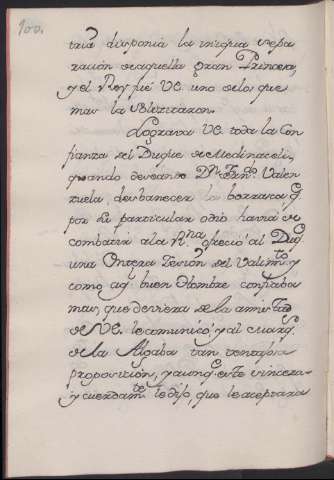 100.
tria disponia la iniqua sepa
racion de aquella gran Princesa,
y el Rey fue VE. uno de los que
mas la solicitaron.
Lograva VE. toda la Con
fianza del Duque de Medinaceli,
quando deseando Dn. Fern.do Valen
zuela, desbanecer la borrasca q.
por su particular odio havia de
combatir a la Rna. ofreció al Duq.
una Entera Zesion del Valim.to y
como aq.l buen Hombre confiaba
mas, que deviera de la amistad
de VE. le comunicó, y al Marq.s
de la Algaba tan ventajosa
proposicion, y aunq. este sincera
y cuerdam.te le dijo, que le aceptara